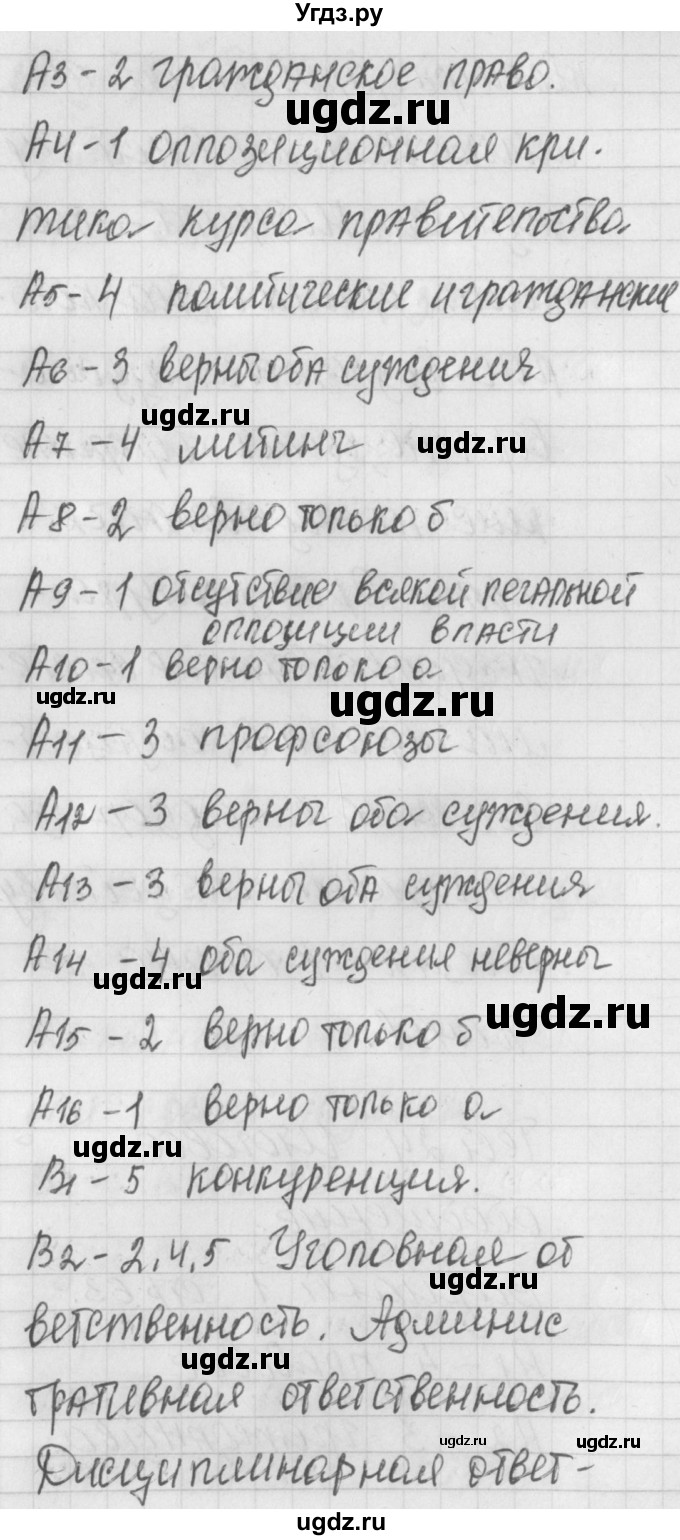 Угдз.ру
А3-2 гражданское право.
ugdz.ru
А4-1 оппозиционная кри-
тика курса правительства
А5-4 политические и гражданские
А6-3 верны оба суждения
ugdz.ru
ugdz.ru
А7-4 митинг
А8-2 верно только б
А9-1 отсутствие всякой легальной
оппозиции власти
А10-1 верно только а
ugdz.ru
ugdz.ru
А11-3 профсоюзы
А12-3 верны оба суждения.
А13-3 верны оба суждения
А14-4 оба суждения неверны
ugdz.ru
ugdz.ru
А15-2 верно только б
А16-1 верно только а
ugdz.ru
В1-5 конкуренция.
В2-2,4,5 Уголовная от
ugdz.ru
ветственность. Админис
ugdz.ru
тративная ответственность.
ugdz.ru
ugdz.ru
Дисциплинарная ответ-
ugdz.ru